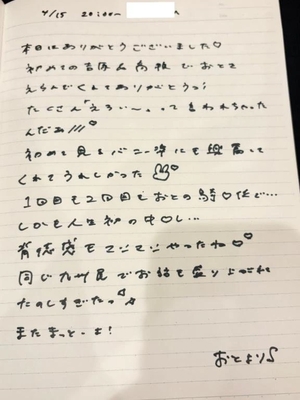 4/15 20:00~
本日はありがとうございました♡
初めての吉原&高級でおとを
えらんでくれてありがとうっ!
たくさん「えろい~」って言われちゃった
んだぁ///♡
初めて見るバニー姿にも興奮して
くれてうれしかった
1回目も2回目もおとの騎♡位で…
しかも人生初の中♡し…
背徳感もマシマシやったね♡♡
同じ九州民でお話も盛り上がれて
たのしすぎたっ
またまっと-よ!
おとより